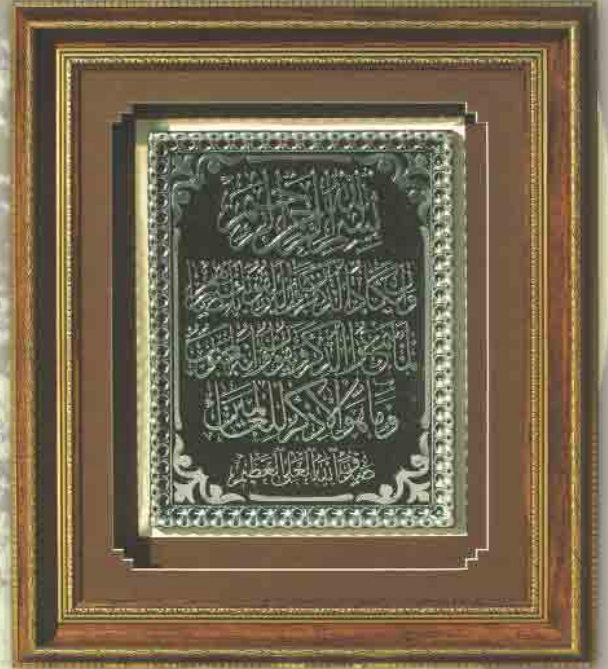 بسم الله الرحمن الرحيم
وان يكاد الذين كفروا ليزلقونك بابصارهم
لما سمعوا الذكر ويقولون انه لمجنون
وما هو الا ذكر للعالمين
صدق الله العلي العظيم